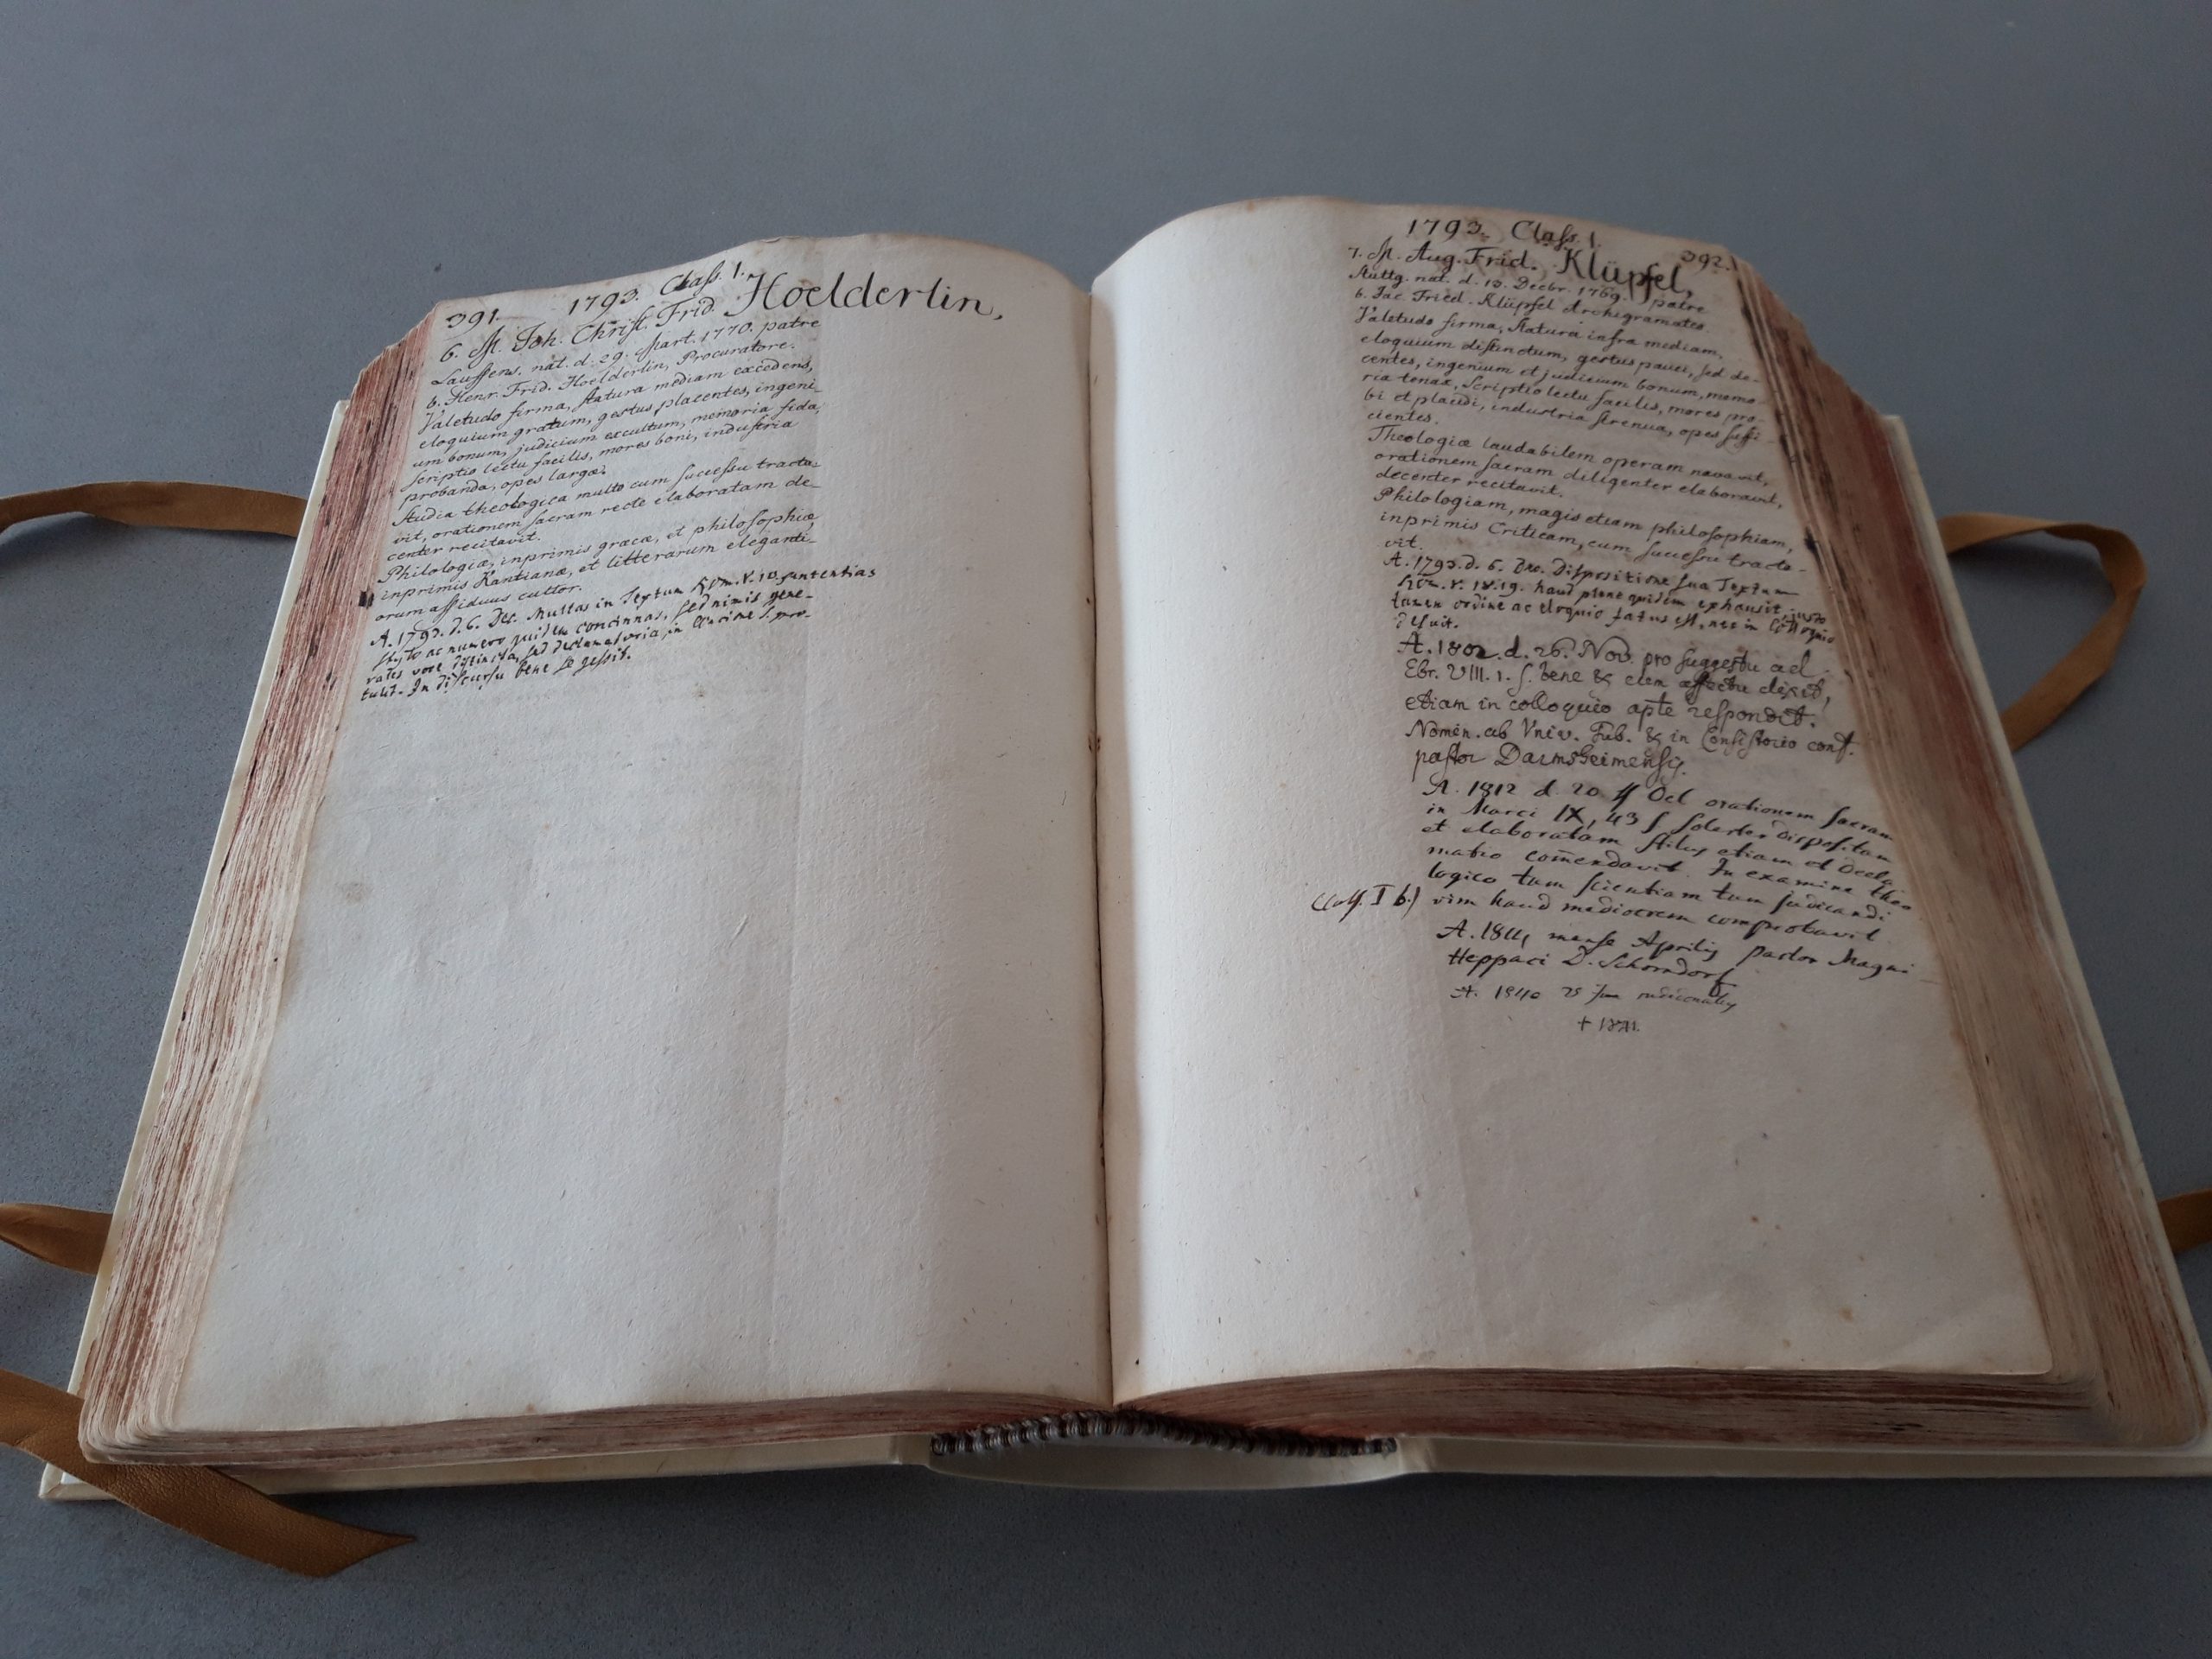 391. 1793. Class. 1.
6. M. Joh. Christ. Frid. Hoelderlin,
Lauffens. nat. d. 29. Mart. 1770. patre
b. Henr. Frid. Hoelderlin, Procuratore.
Valetudo firma, statura mediam excedens,
eloquium gratum, gestus placentes, ingeni-
um bonum, judicium excultum, memoria fida,
scriptio lectu facilis, mores boni, industria
probanda, opes largæ.
Studia theologica multo cum successu tracta-
vit, orationem sacram recte elaboratam de-
center recitavit.
Philologiæ, inprimis græcæ, et philosophiæ,
inprimis Kantianæ, et litterarum eleganti-
orum assiduus cultor.
A. 1793. d. 6. Dec. Multas in Textum Rom. V. 10. sententias
stylo ac numero quidem concinnas, sed nimis gene-
rales voce distincta, sed declamatoria, in
tulit. In discursu bene se gessit.
1793. Class. 1. 392.
7. M. Aug. Frid. Klüpfel,
Stuttg. nat. d. 13. Decbr. 1769. patre
b. Jac. Fried. Klüpfel Archigrammateo.
Valetudo firma, statura infra mediam,
eloquium distinctum, gestus pauci, sed de-
centes, ingenium et judicium bonum, memo-
ria tenax, scriptio lectu facilis, mores pro-
bi et placidi, industria strenua, opes suffi-
cientes.
Theologiæ laudabilem operam navavit,
orationem sacram diligenter elaboravit,
decenter recitavit.
Philologiam, magis etiam philosophiam,
inprimis Criticam, cum successu tracta-
vit.
A. 1793. d. 6. Dec. Dispositione sua Textum
Rom. V. 18. 19. haud plene quidem exhausit, justo
tamen ordine ac eloquio fatus est, nec in Colloquio
defuit.
A. 1802. d. 26. Nov. pro suggestu ad
Ebr. VIII. 1. s. bene & cum affectu dixit,
etiam in colloquio apte respondit.
Nomin. ab Univ. Tub. & in Consistorio conf.
pastor Darmsheimensis.
A. 1812 d. 20 Oct orationem sacram
in Marci IX, 43 s solerter dispositam
et elaboratam stilus etiam et decla
matio comendavit. In examine theo
logico tum scientiam tum judicandi
Class. I b.) vim haud mediocrem comprobavit
A. 1814 mense Aprilis pastor Magni
Heppaci D. Schorndorf
A. 1840
† 1841.